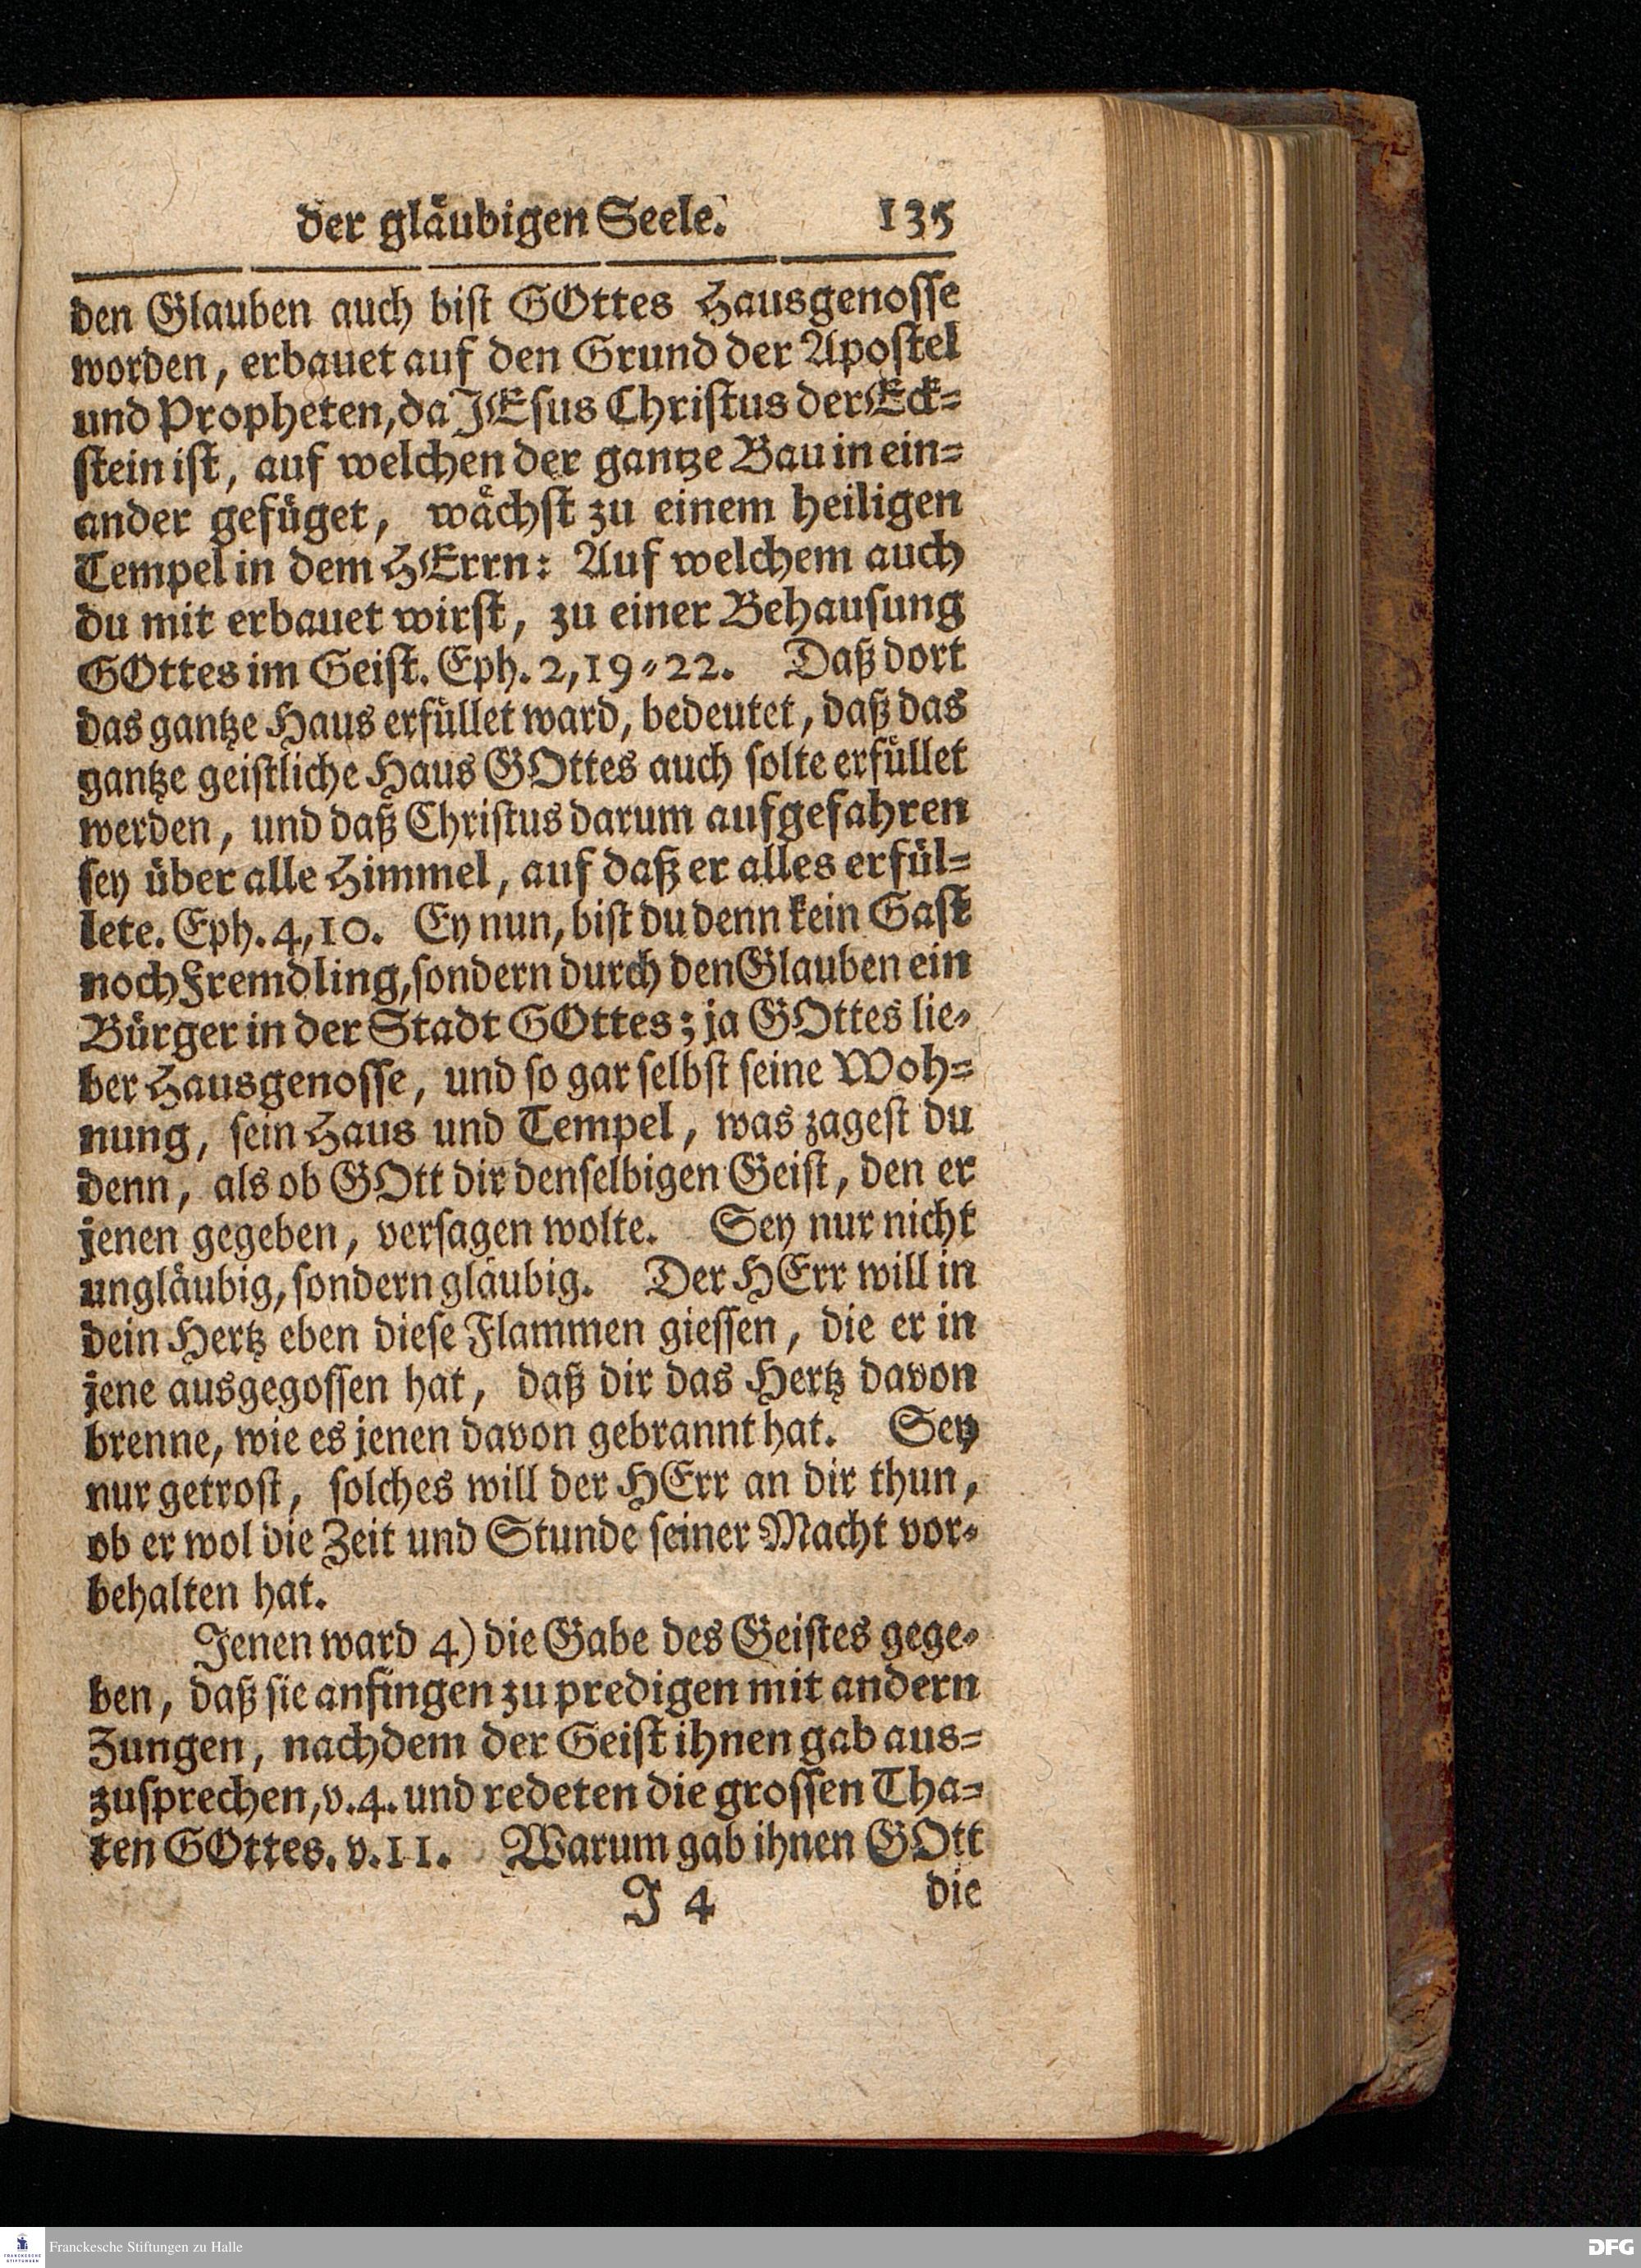 der gläubigen Seele. 135
den Glauben auch bist GOttes Hausgenosse
worden, erbauet auf den Grund der Apostel
und Propheten, da JEsus Christus der Eck-
stein ist, auf welchen der gantze Bau in ein-
ander gefüget, wächst zu einem heiligen
Tempel in dem HErrn: Auf welchem auch
du mit erbauet wirst, zu einer Behausung
GOttes im Geist. Eph. 2, 19-22. Daß dort
das gantze Haus erfüllet ward, bedeutet, daß das
gantze geistliche Haus GOttes auch solte erfüllet
werden, und daß Christus darum aufgefahren
sey über alle Himmel, auf daß er alles erfül-
lete. Eph. 4, 10. Ey nun, bist du denn kein Gast
noch Fremdling, sondern durch den Glauben ein
Bürger in der Stadt GOttes; ja GOttes lie-
ber Hausgenosse, und so gar selbst seine Woh-
nung, sein Haus und Tempel, was zagest du
denn, als ob GOtt dir denselbigen Geist, den er
jenen gegeben, versagen wolte. Sey nur nicht
ungläubig, sondern gläubig. Der HErr will in
dein Hertz eben diese Flammen giessen, die er in
jene ausgegossen hat, daß dir das Hertz davon
brenne, wie es jenen davon gebrannt hat. Sey
nur getrost, solches will der HErr an dir thun,
ob er wol die Zeit und Stunde seiner Macht vor-
behalten hat.
Jenen ward 4) die Gabe des Geistes gege-
ben, daß sie anfingen zu predigen mit andern
Zungen, nachdem der Geist ihnen gab aus-
zusprechen, v. 4. und redeten die grossen Tha-
ten GOttes. v. 11. Warum gab ihnen GOtt
J 4 die
FRANCKESCHE STIFTUNGEN
Franckesche Stiftungen zu Halle
DFG